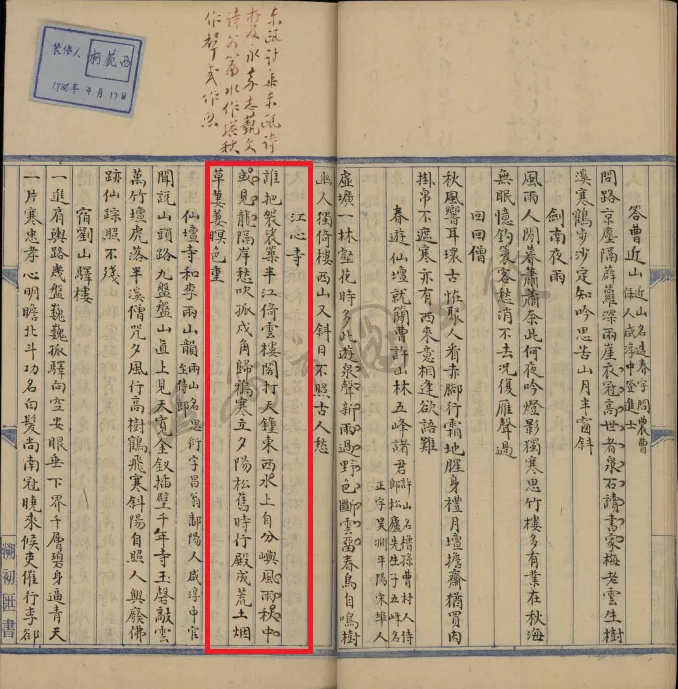 東甌詩集東甌詩
及永嘉志藝文
诗外篇水作塔秋
作聲或作思
裝修人
年 月17日
答曹近山 近山名逢春字農曹
人咸淳中登進士
問路京塵隔薜蘿深雨崖衣冠高世者泉石讀書家梅老雲生樹
溪寒鶴步沙定知吟思苦山月半窗斜
劍南夜雨
風雨人閒暮蕭蕭奈此何夜吟燈影獨寒思竹樓多有業在秋海
無眠憶釣簑客愁消不去况復雁聲過
回回僧
秋風響耳環古恠聚人看赤腳行霜地腥身禮月壇擔齋猶買肉
掛帛不遮寒亦有西來意相逢欲語難
春遊仙壇就簡曹許山林五峰諸君 許山名楷孫曹村人侍
郎松廬先生子五峰名
正字昊淵平陽宋埠人
虛壙一林花時多此遊泉聲新雨過野色斷雲畱春鳥自鳴樹
幽人獨倚樓西山又斜日不照古人愁
江心寺
誰把袈裟築半江倚雲樓閣打天鐘東西水上自分嶼風雨秋中
或見龍隔岸愁吹孤戍角歸鴉寒立夕陽松舊時行殿成荒土烟
草萋萋暝色重
仙壇寺和李雨山韻 雨山名思衍字昌翁鄱陽人咸淳中官
至侍郎
聞說山頭路九盤盤山直上見天寬金釵插壁千年寺玉磬敲雲
萬竹壇虎落半溪僧咒夕風行高樹鶴飛寒斜陽自照人興廢佛
跡仙踪照不殘
宿劉山驛樓
一進肩輿路幾盤巍巍孤驛向空安眼垂下界千層碧身逼青天
一片寒忠孝心明瞻北斗功名白髮尚南冠曉來候吏催行李卻